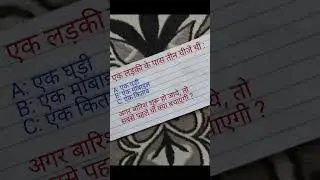 एक लड़की के पास तीन चीजें थी :
A: एक घड़ी
B: एक मोबाइल
C: एक किताब
अगर बारिश शुरू हो जाये, तो
सबसे पहले वो क्या बचाएगी ?
एक लड़की
A: एक घड़ी
B: एक मोबाइ
C: एक किता
अगर बारिश
सबसे पहले
जाये, तो
चाएगी ?